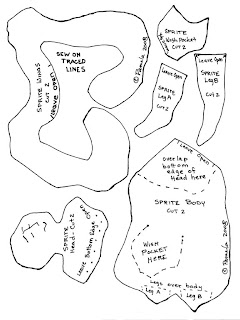 SPRITE WINGS
CUT 2
Leave open
SEW ON
TRACED
LINES
© Pamula 2008
SPRITE
Wish Pocket
CUT 2
Leave Open
SPRITE
Leg A
CUT 2
Leave Open
SPRITE
Leg B
CUT 2
SPRITE
Head - Cut 2
Leave Bottom Edge
Leave Open
overlap
bottom
edge of
Head here
SPRITE BODY
CUT 2
WISH
POCKET
HERE
Legs over body
Leg A
Leg B
2008